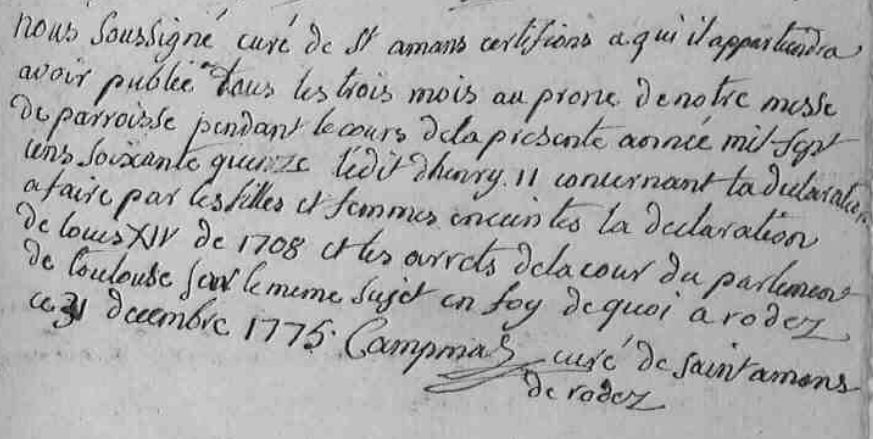 nous soussigné curé de st amans certifions a qui il appartiendra
avoir publié tous les trois mois au prone de notre messe
de parroisse pendant le cours de la presente année mil sept
cens soixante quinze l'édit dhenry II concernant la declaration
a faire par les filles et femmes enceintes la declaration
de louis XIV de 1708 et les arrets de la cour du parlement
de toulouse sur le meme sujet en foy de quoi a rodez
ce 31 decembre 1775. Campmas curé de saint amans
de rodez